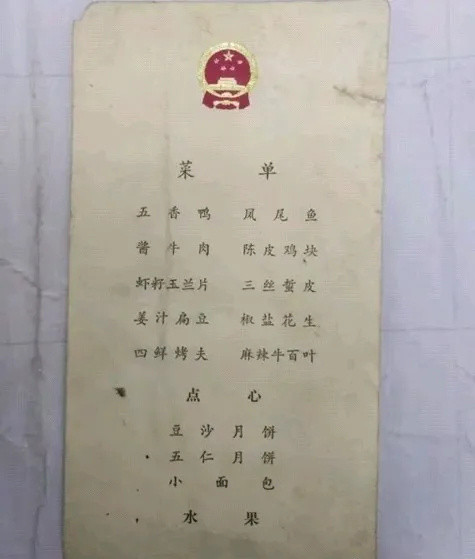 菜单
五香鸭 凤尾鱼
酱牛肉 陈皮鸡块
虾籽玉兰片 三丝蜇皮
姜汁扁豆 椒盐花生
四鲜烤夫 麻辣牛百叶
点心
豆沙月饼
五仁月饼
小面包
水果